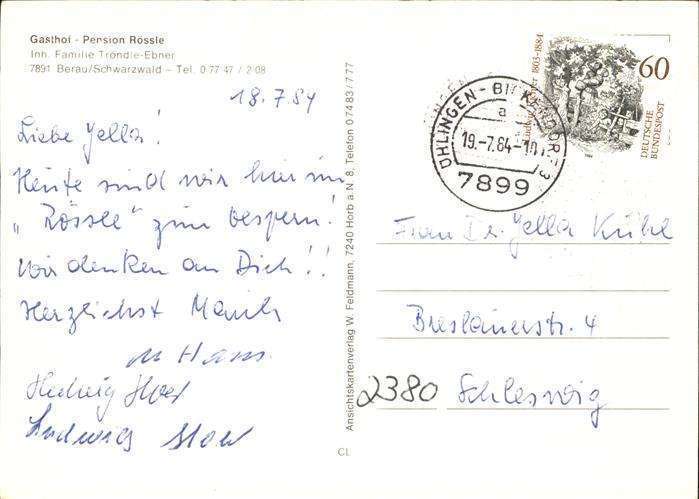 Gasthof - Pension Rössle
Inh. Familie Tröndle-Ebner
7891 Berau/Schwarzwald – Tel. 0 77 47 / 2 08
18.7.84
Liebe Jella!
Heute sind wir hier im
„Rössle“ zum vespern!
Wir denken an Dich!!
Herzlichst
u Hans
Hedwig
Ludwig
Ansichtskartenverlag W. Feldmann, 7240 Horb a. N. 8, Telefon 0 74 83 / 7 77
CL
1803-1884
60
DEUTSCHE
BUNDESPOST
ÜHLINGEN-BIRKENDORF 3
a
19.-7.84-10
7899
Frau Dr. Jella Kühl
Breslauerstr. 4
2380 Schleswig